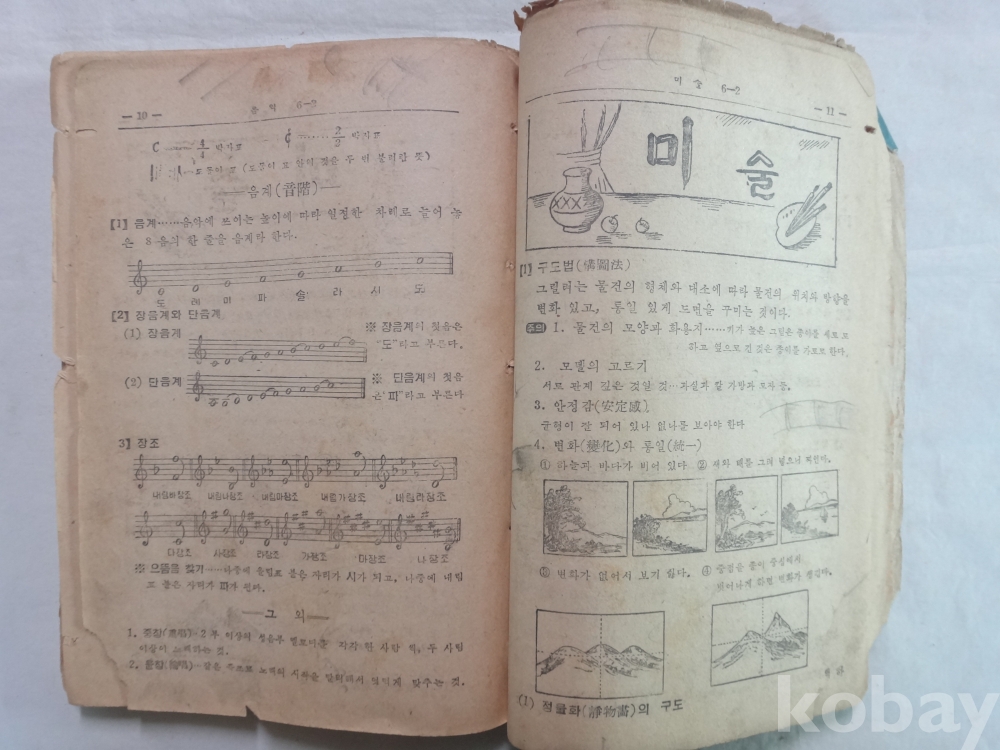 — 10 —
음 악 6—2
C ······ 4/4 박자표
¢ ······ 2/2 박자표
도돌이표 (도돌이표 안의 것을 두 번 불러란 뜻)
——음계(音階)——
[1] 음계······음악에 쓰이는 높이에 따라 일정한 차례로 늘어 놓
은 8음의 한 줄을 음계라 한다.
도 레 미 파 솔 라 시 도
[2] 장음계와 단음계
(1) 장음계
※ 장음계의 첫음은
"도"라고 부른다.
(2) 단음계
※ 단음계의 첫음
은 "라"라고 부른다
3] 장조
내림바장조 내림나장조 내림마장조 내림가장조 내림라장조
다장조 사장조 라장조 가장조 마장조 나장조
※ 으뜸음 찾기······나중에 올림표 붙은 자리가 시가 되고, 나중에 내림
표 붙은 자리가 파가 된다.
——그 외——
1. 중창(重唱)—2부 이상의 각각 한 사람 씩, 두 사람
이상이 노래하는 것.
2. 돌림 노래의 시작을 맞추는 것.
미 술 6—2
— 11 —
미술
[1] 구도법(構圖法)
그릴려는 물건의 형체와 대소에 따라 물건의 위치와 방향을
변화 있고, 통일 있게 도면을 꾸미는 것이다.
주의 1. 물건의 모양과 화용지······키가 높은 그림은 종이를 세로로
하고 옆으로 긴 것은 종이를 가로로 한다.
2. 모델의 고르기
서로 관계 깊은 것일 것···과실과 칼 가방과 모자 등.
3. 안정감(安定感)
균형이 잘 되어 있나 없나를 보아야 한다
4. 변화(變化)와 통일(統一)
① 하늘과 바다가 비어 있다 ② 새와 배를 그려 넣으니
③ 변화가 없어서 보기 싫다. ④ 중점을 중심에서
벗어나게 하면 변화가 생긴다.
(1) 정물화(靜物畵)의 구도
kobay